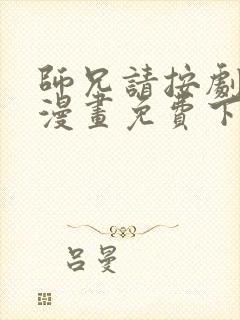 師兄請按劇
漫畫免費下
呂曼